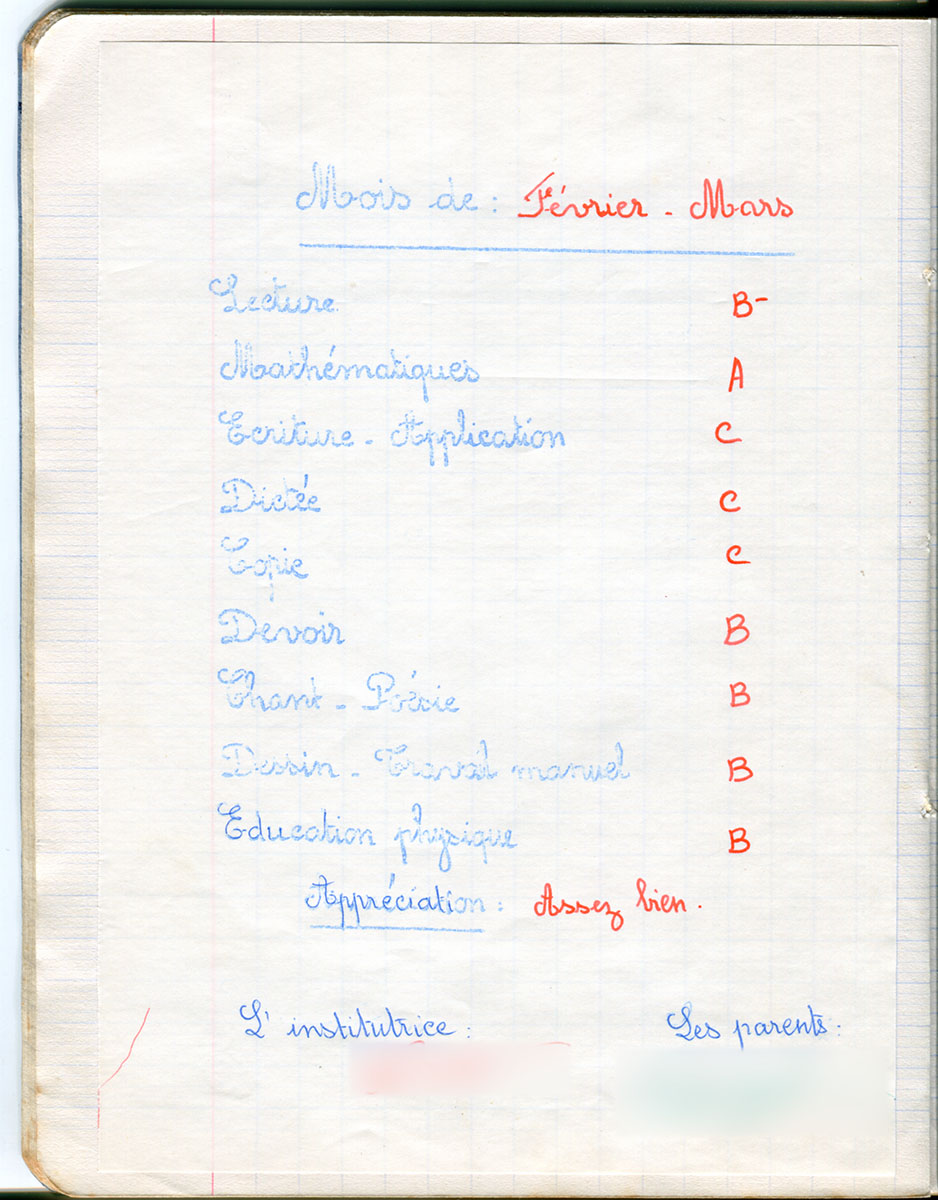 Mois de : Février - Mars
Lecture B-
Mathématiques A
Ecriture - Application C
Dictée C
Copie C
Devoir B
Chant - Poésie B
Dessin - Travail manuel B
Education physique B
Appréciation : Assez bien.
L'institutrice : Les parents :